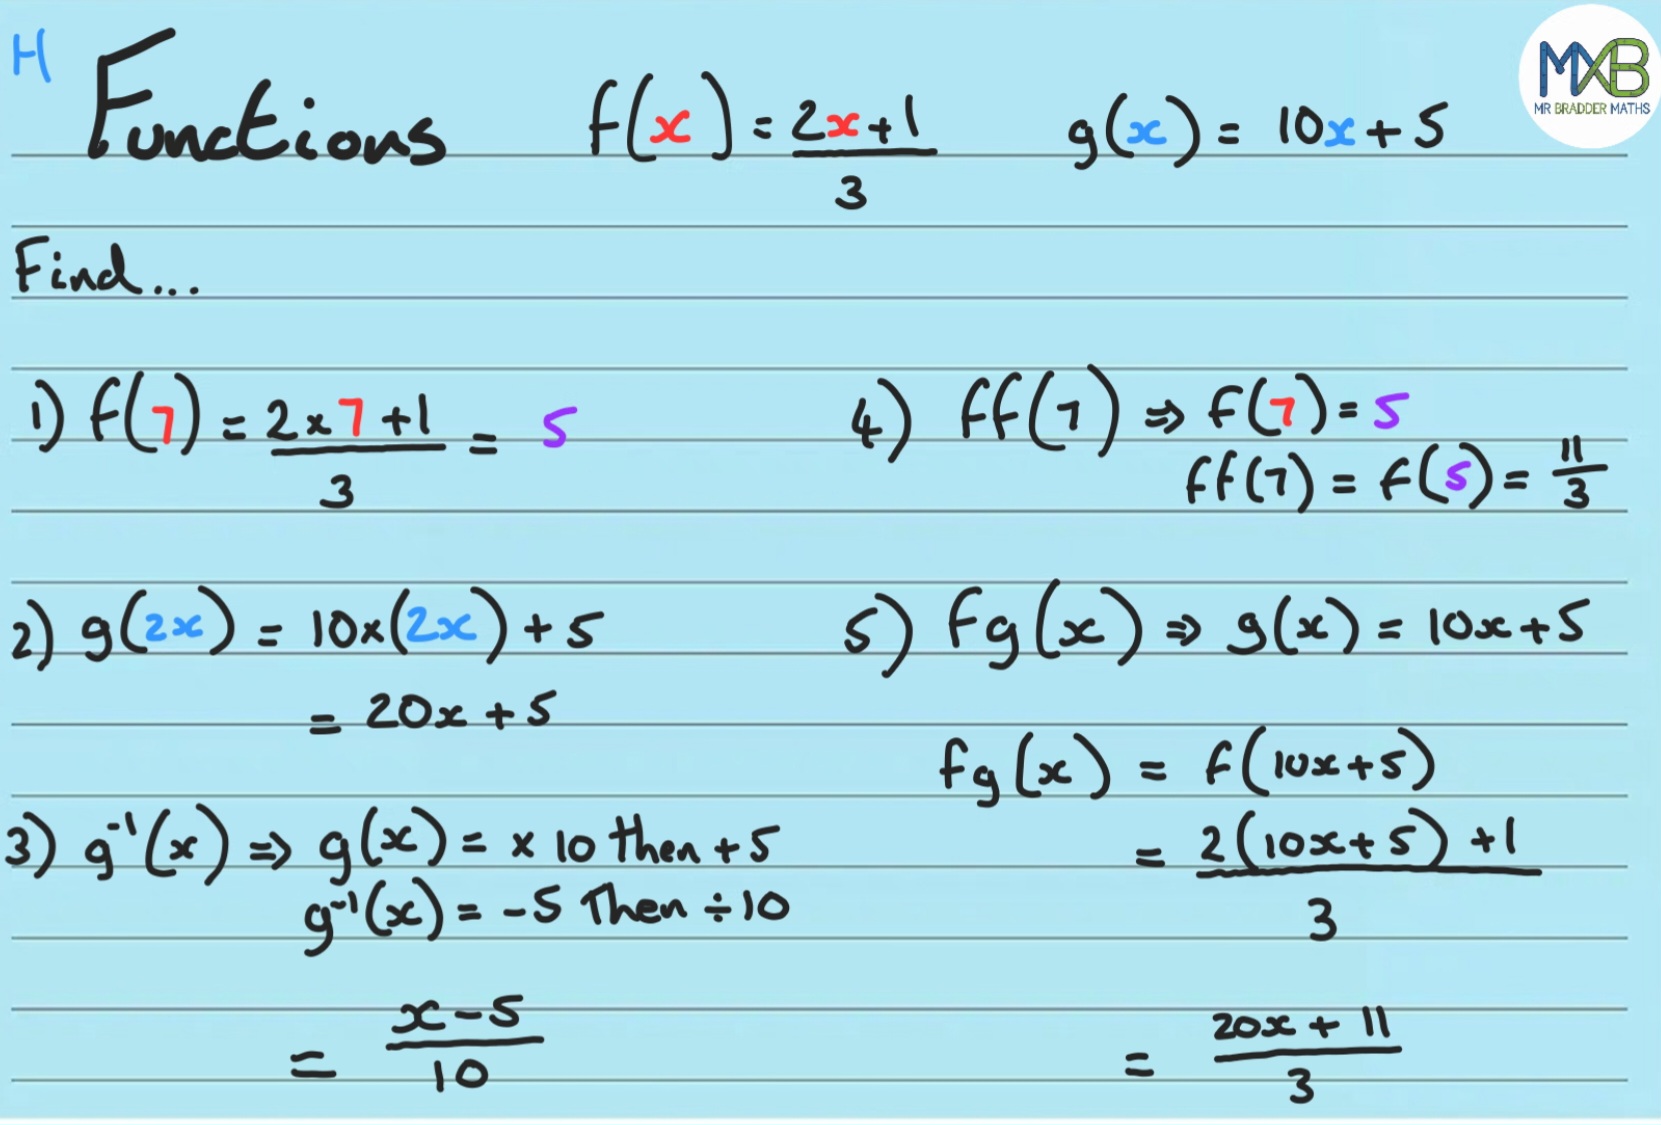 H
Functions f(x) = (2x+1)/3 g(x) = 10x + 5
MXB
MR BRADDER MATHS
Find...
1) f(7) = (2×7+1)/3 = 5
2) g(2x) = 10×(2x) + 5
= 20x + 5
3) g⁻¹(x) ⇒ g(x) = × 10 then + 5
g⁻¹(x) = -5 Then ÷10
= (x-5)/10
4) ff(7) ⇒ f(7) = 5
ff(7) = f(5) = 11/3
5) fg(x) ⇒ g(x) = 10x+5
fg(x) = f(10x+5)
= (2(10x+5)+1)/3
= (20x + 11)/3